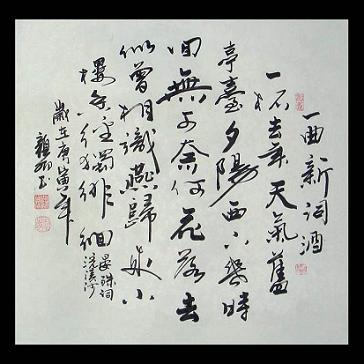 一曲新詞酒
一杯去年天氣舊
亭臺夕陽西下幾時
回無可奈何花落去
似曾相識燕歸來小
香徑獨徘徊
晏殊詞
浣溪沙
歲在庚寅年